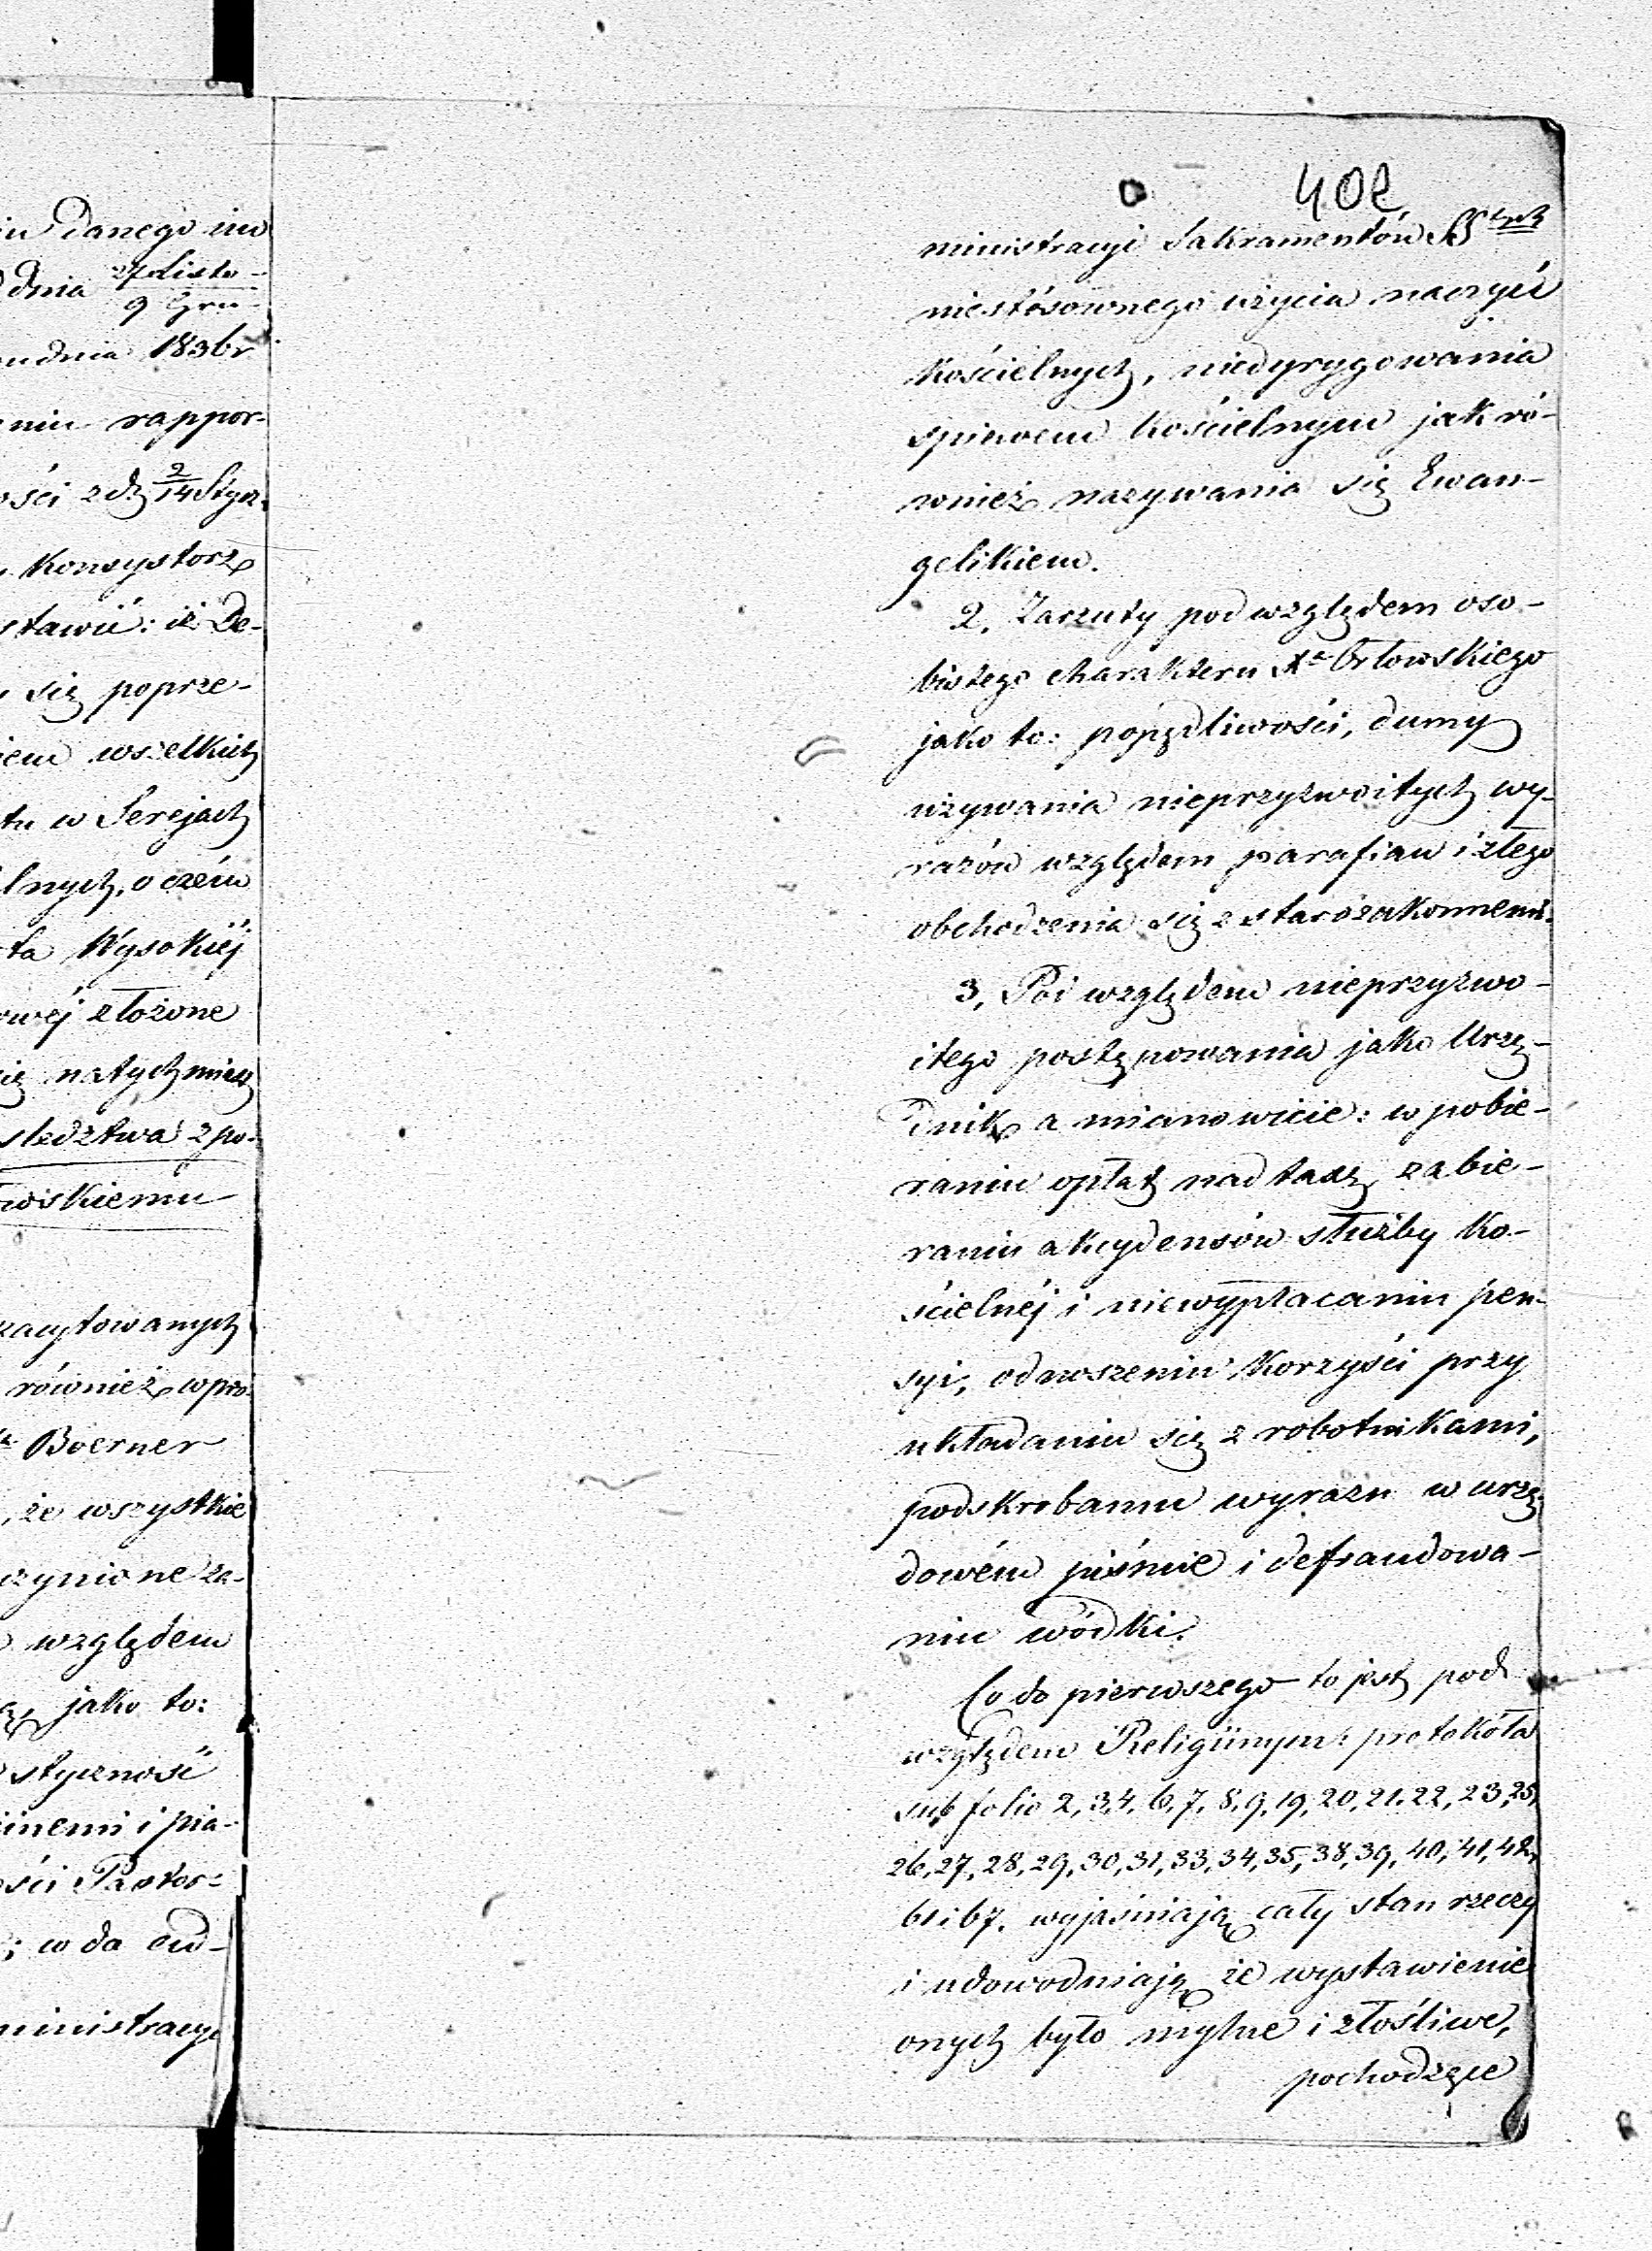 iu danego im
dnia 27 Listo-
9 Gru-
udnia 1836 r
niu rappor-
ości z d. 2/14 Stycz.
Konsystorz
stawić: iż De-
się poprze-
iem wszelkich
tu w Serejach
lnych, o czém
ta Wysokiéj
owéj złożone
ię natychmias
śledztwa z po-
owskiemu
zacytowanych
również w pro
Boerner
, że wszystkie
czynione za-
względem
jako to:
styczność
iinemi i pia-
ości Pastor-
; w da
ministracyi
402
ministracyi Sakramentów SS tych
niestósownego użycia naczyń
Kościelnych, niedyrygowania
spiewem Kościelnym jak ró-
wnież nazywania się Ewan-
gelikiem.
2. Zarzuty pod względem oso-
bistego charakteru Xa Orłowskiego
jako to: popędliwości, dumy
używania nieprzyzwoitych wy-
razów względem parafian i złego
obchodzenia się z starozakonnemi.
3, Pod względem nieprzyzwo-
itego postępowania jako Urzę-
dnik a mianowicie: w pobie-
raniu opłat nad taxę, zabie-
raniu akcydensów służby Ko-
ścielnéj i niewypłacaniu pen-
syi, odnoszeniu Korzyści przy
układaniu się z robotnikami,
podskrobaniu wyrazu w urzę-
dowém piśmie i defraudowa-
niu wódki.
Co do pierwszego to jest pod
względem Religiinym: protokóła
sub folio 2, 3, 4, 6, 7, 8, 9, 19, 20, 21. 22, 23, 25,
26, 27, 28, 29, 30, 31, 33, 34, 35, 38, 39, 40, 41, 42,
61 i 67. wyjaśniają cały stan rzeczy
i udowodniają że wystawienie
onych było mylne i złośliwe,
pochodzące